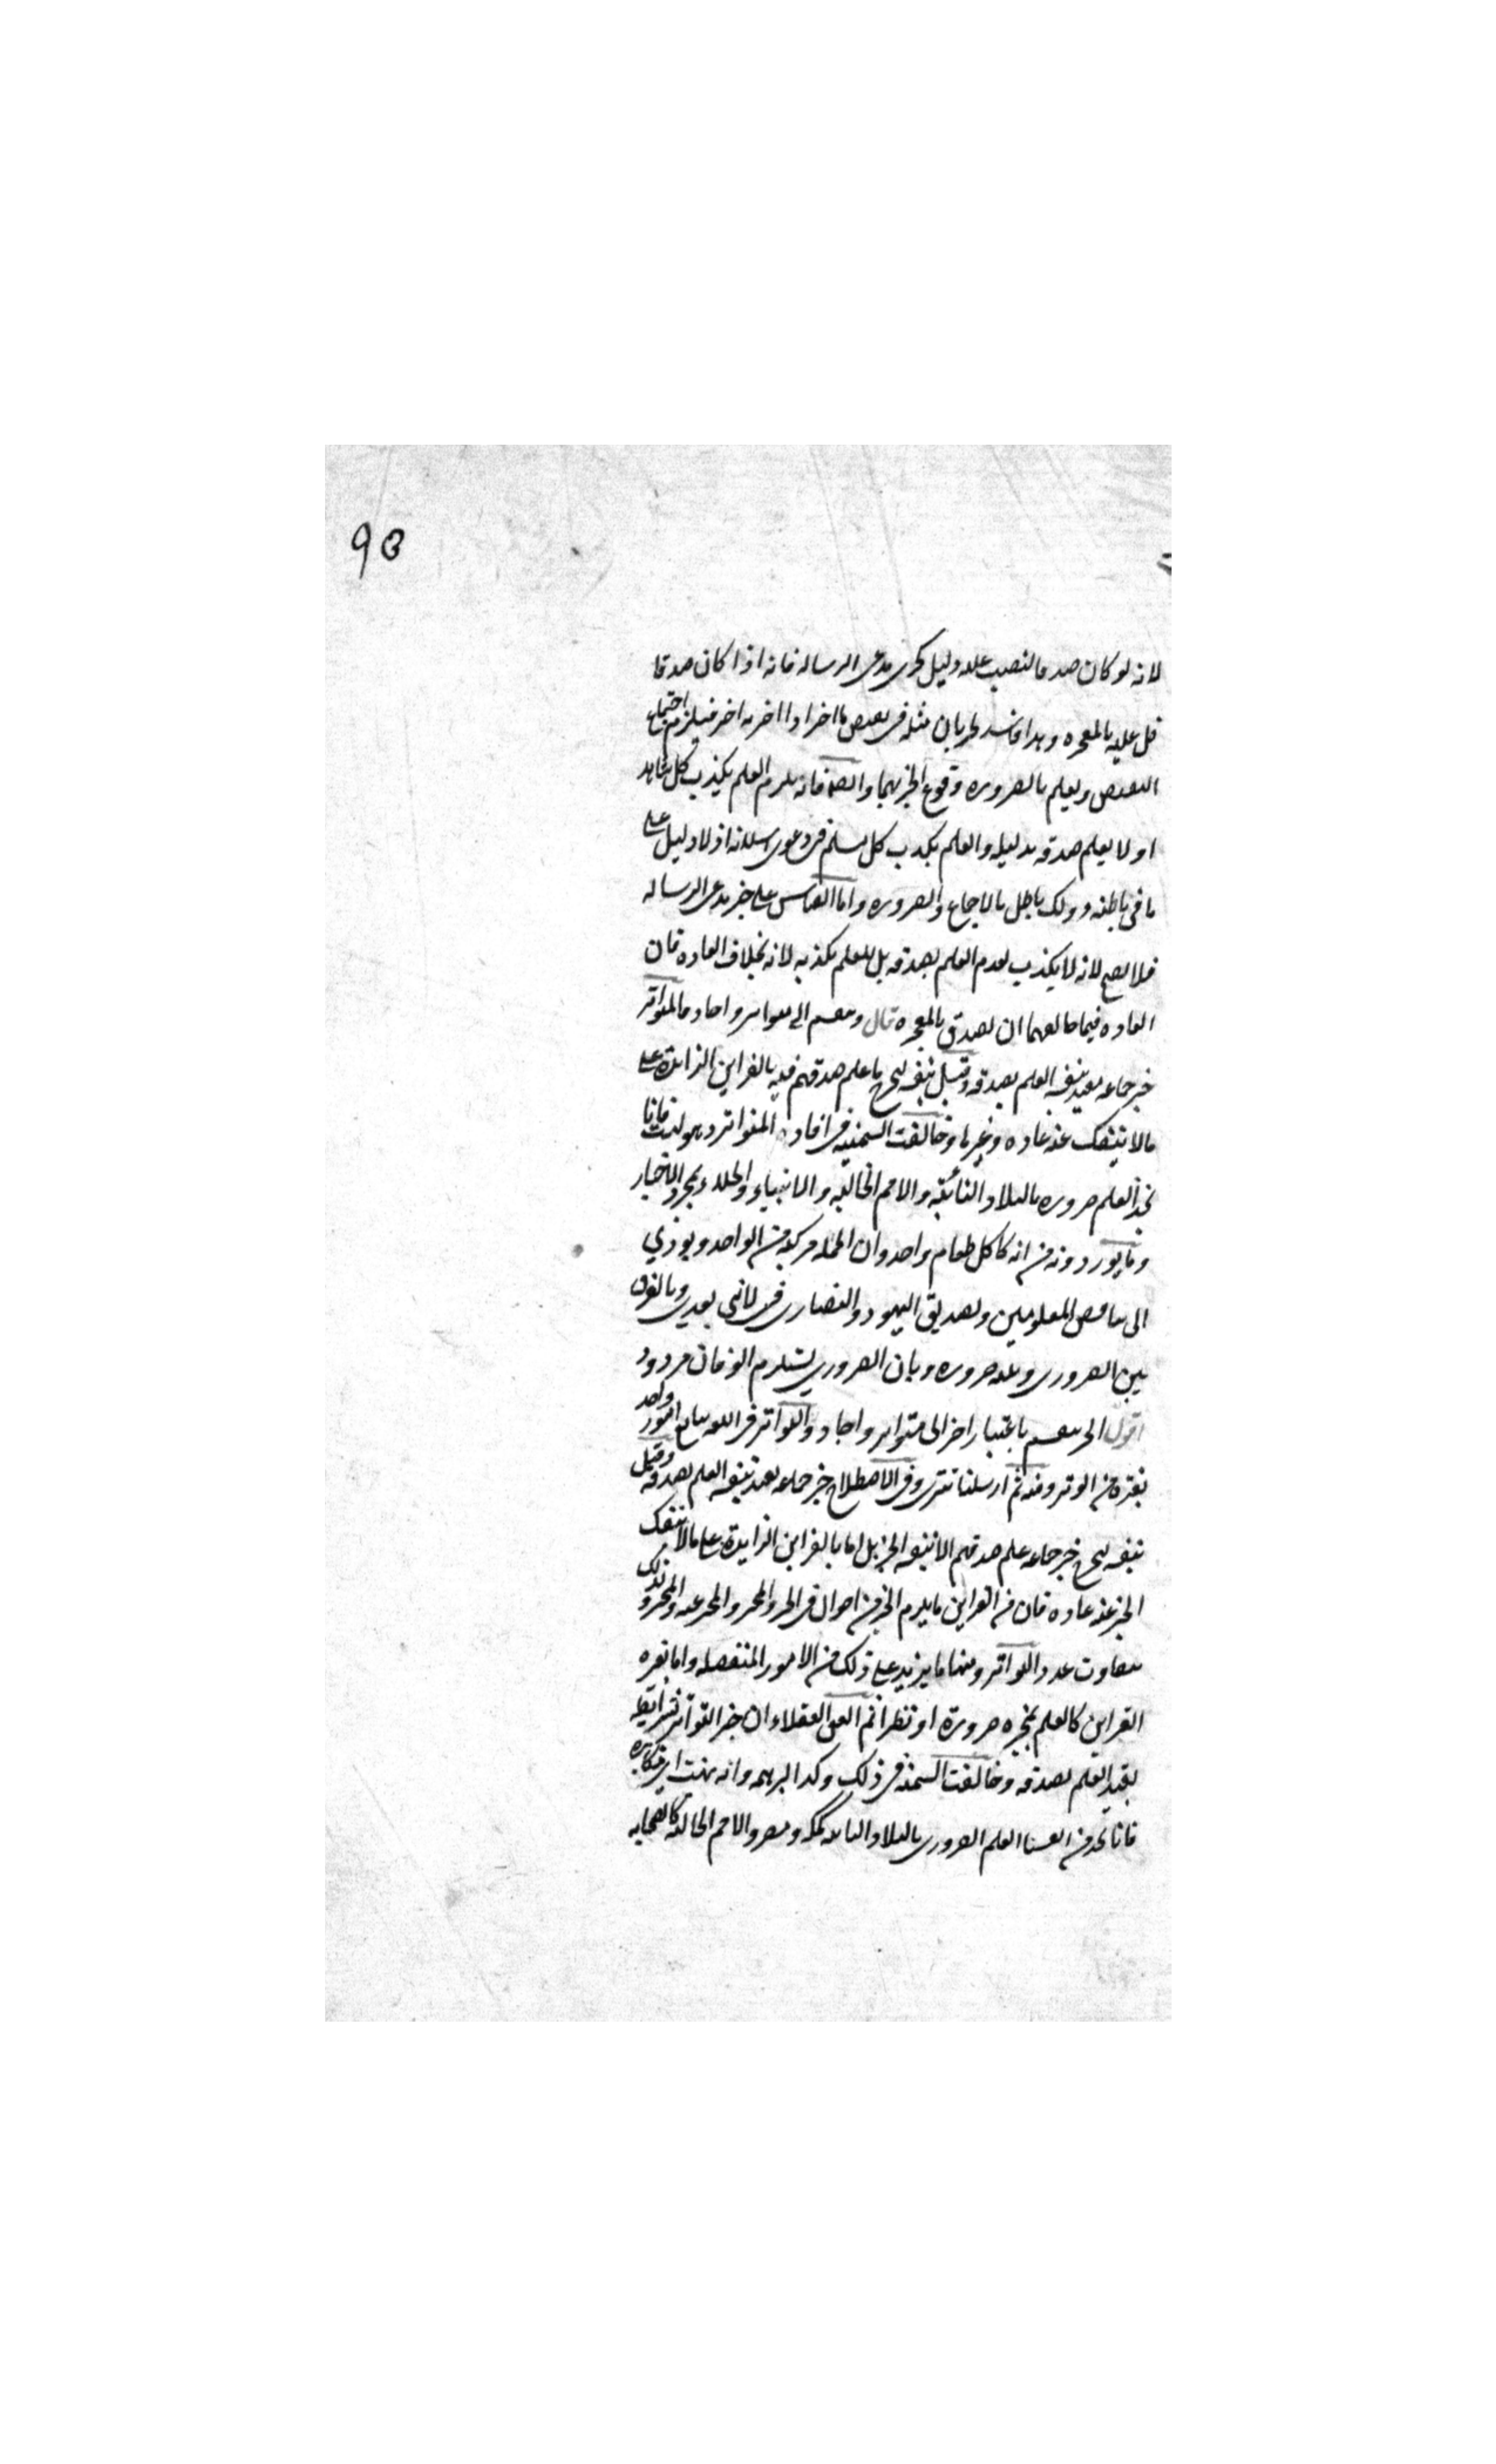 ٩٥
لانه لو كان صدقا لنصب عليه دليل كخبر مدعى الرساله فانه اذا كان صدقا
دل عليه بالمعجزه وهذا فاسد لجريان مثله فى نقيض ما اخبر اذا اخبر به اخر فيلزم اجتماع
النقيضين ويعلم بالضروره وقوع الخبر بهما وايضا فانه يلزم العلم بكذب كل شاهد
اذ لا يعلم صدقه بدليله والعلم بكذب كل مسلم فى دعوى اسلامه اذ لا دليل على
ما فى باطنه وذلك باطل بالاجماع والضروره واما القياس على خبر مدعى الرساله
فلا يصح لانه لا يكذب لعدم العلم بصدقه بل للعلم بكذبه لانه بخلاف العاده فان
العاده فيما خالفها ان يصدق بالمعجزه قال وينقسم الى متواتر واحاد فالمتواتر
خبر جماعه مفيد بنفسه العلم بصدقه وقيل بنفسه ليخرج ما علم صدقهم فيه بالقراين الزايدة على
مالا ينفك عنه عاده وغيرها وخالفت السمنيه فى افادة المتواتر وهو بهت فانا
نجد العلم ضروره بالبلاد النائيه والامم الخاليه والانبياء والخلفاء بمجرد الاخبار
وما يوردونه من انه كاكل طعام واحد وان الجمله مركبه من الواحد ويؤدي
الى تناقض المعلومين وتصديق اليهود والنصارى فى لا نبى بعدي وبالفرق
بين الضرورى وبينه ضروره وبان الضروري يستلزم الوفاق مردود
اقول الخبر ينقسم باعتبار اخر الى متواتر واحاد والتواتر فى اللغه تتابع امور واحد
بفترة من الوتر ومنه ثم ارسلنا تترى وفى الاصطلاح خبر جماعه يفيد بنفسه العلم بصدقه وقيل
بنفسه ليخرج خبر جماعه علم صدقهم لا بنفس الخبر بل اما بالقراين الزايدة على مالا ينفك
الخبر عنه عاده فان من القراين ما يلزم الخبر من احوال فى الخبر والمخبر والمخبر عنه ولذلك
يتفاوت عدد التواتر ومنها ما يزيد على ذلك من الامور المنفصله واما بغيره
القراين كالعلم بمخبره ضرورة او نظرا ثم اتفق العقلاء ان خبر التواتر بشرايطه
يفيد العلم بصدقه وخالفت السمنيه فى ذلك وكذا البراهمه وانه بهت اى مكابره
فانا نجد من انفسنا العلم الضرورى بالبلاد النائيه كمكه ومصر والامم الخاليه كالصحابه